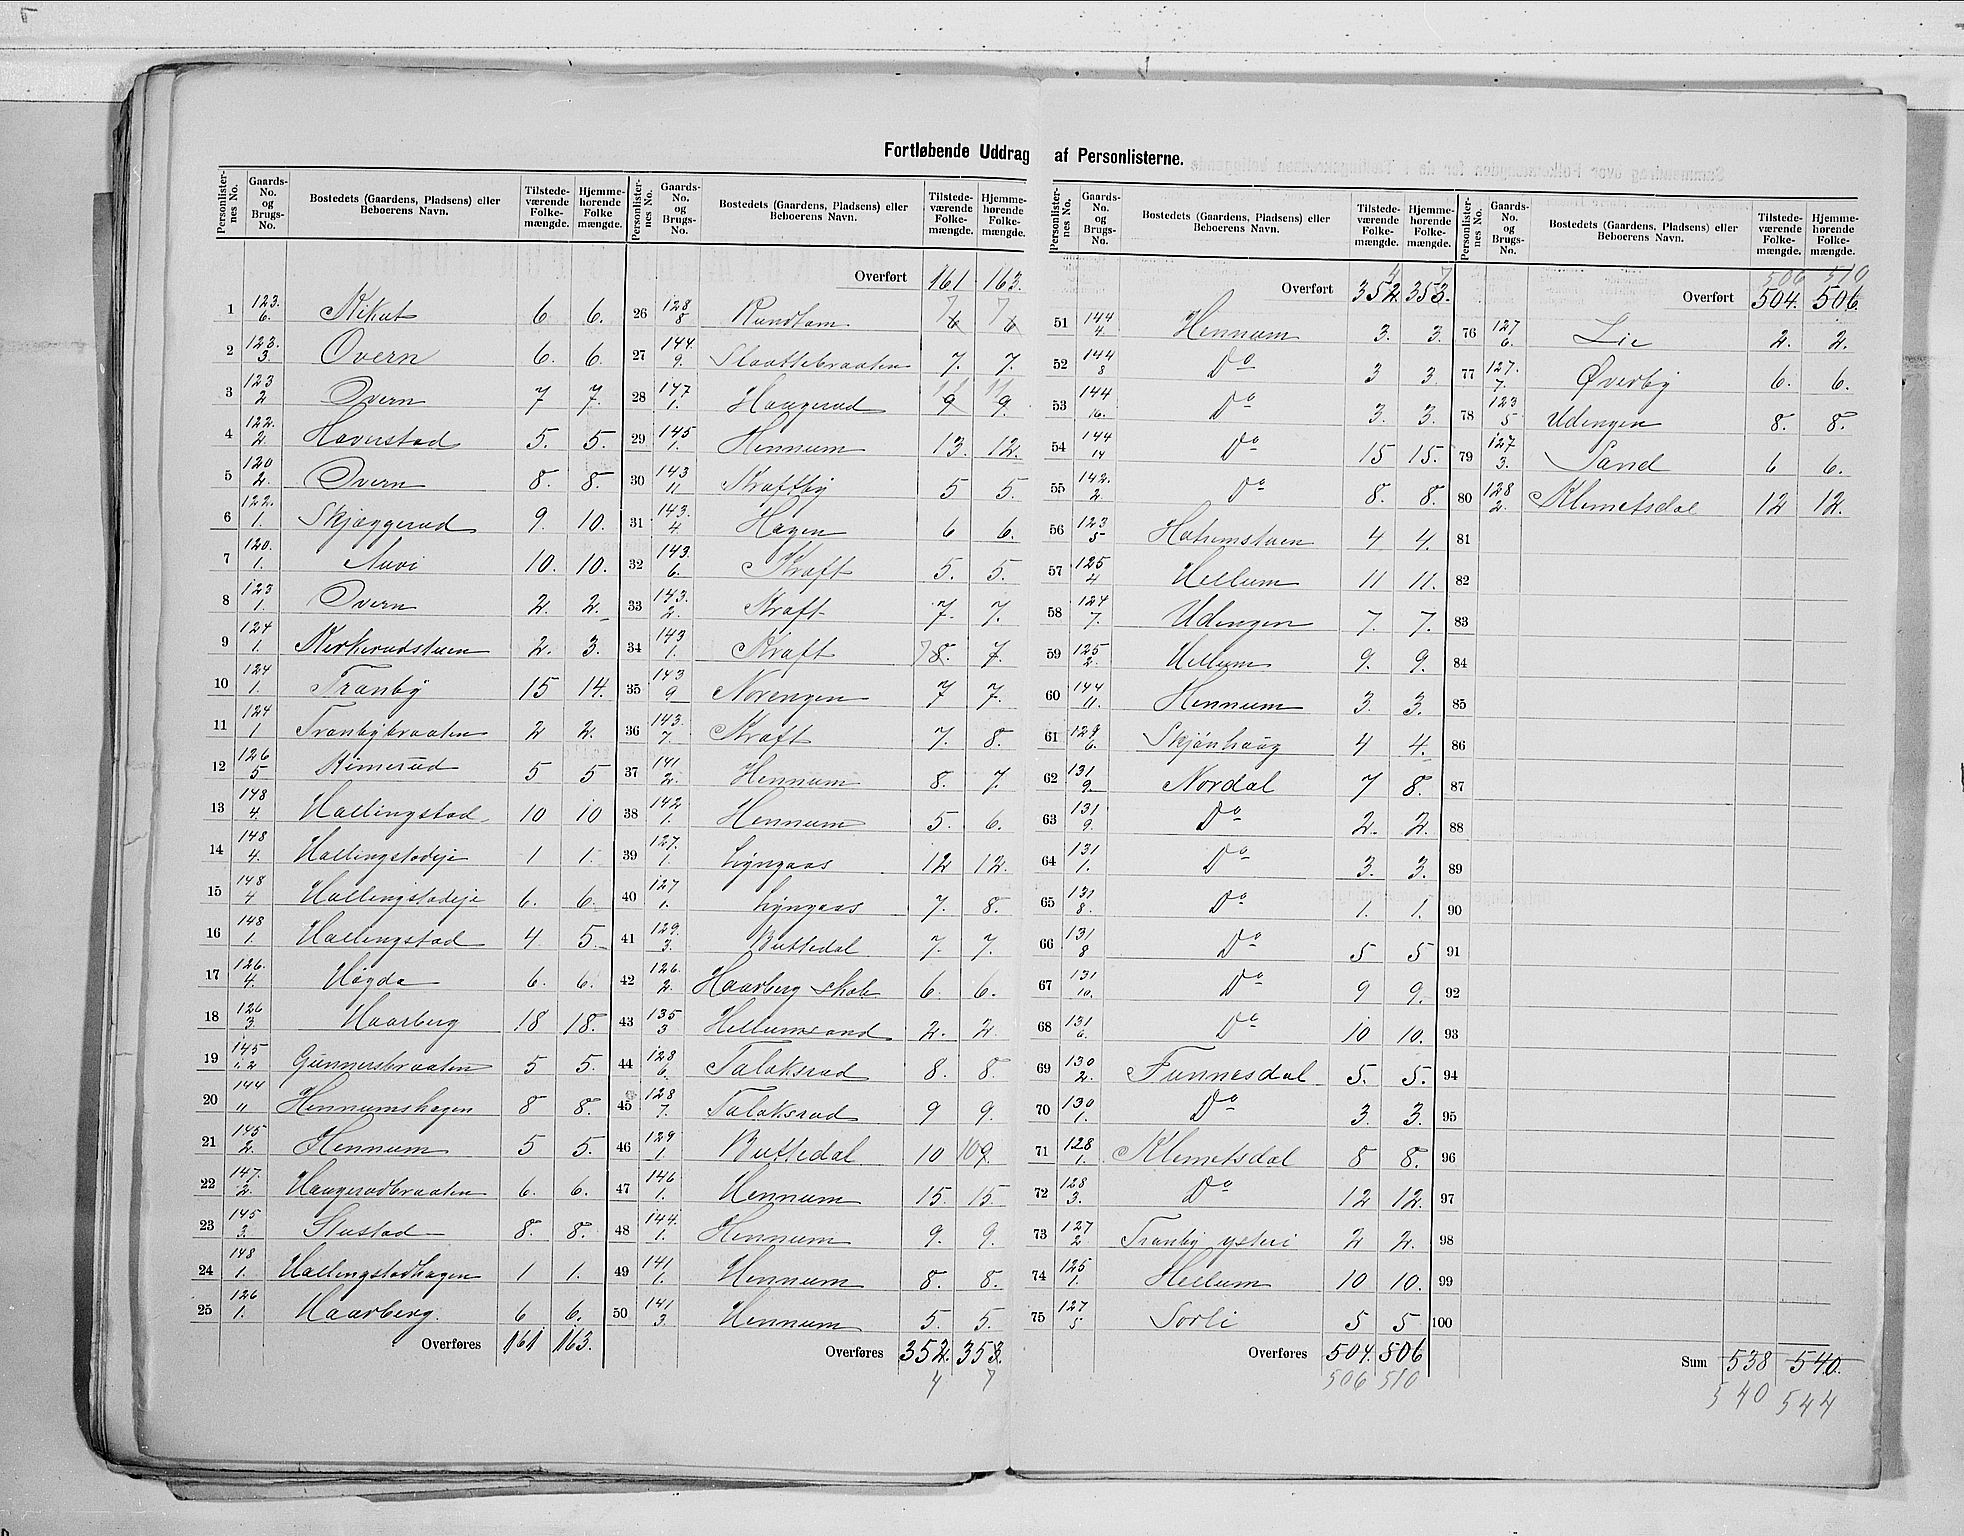 Fortløbende Uddrag af Personlisterne.
Personlister-nes No. Gaards-No. og Brugs-No. Bostedets (Gaardens, Pladsens) eller Beboerens Navn. Tilstede-værende Folke-mængde. Hjemme-hørende Folke mængde.
1 123. 6. Kikut 6 6.
2 123. 3. Overn 6. 6.
3 123 2 Overn 7 7.
4 122. 2. Haverstad 5. 5.
5 120 2. Overn 8. 8.
6 122. 1. Skjæggerud 9. 10.
7 120. 1. Auvi 10. 10.
8 123 1. Overn 2. 2.
9 124 1. Kerkerudstuen 2. 3.
10 124 1. Tranby 15 14.
11 124 1 Tranbybraaten 2 2.
12 126 5 Rimerud 5 5
13 148 4. Hallingstad 10 10
14 148 4. Hallingstadeje 1 1.
15 148 4 Hallingstadeje 6. 6.
16 148 1. Hallingstad 4 5.
17 126. 4. Høgda 6. 6.
18 126 3. Haarberg 18 18.
19 145 1.2 Gunnersbraaten 5 5.
20 144 " Hennumshagen 8 8.
21 145 2. Hennum 5 5.
22 147. 2. Haugerudbraaten 6. 6.
23 145 3. Stustad 8. 8.
24 148 1. Hallingstadhagen 1 1.
25 126 1. Haarberg. 6 6.
Overføres 161 163.
Personlister-nes No. Gaards-No. og Brugs-No. Bostedets (Gaardens, Pladsens) eller Beboerens Navn. Tilstede-værende Folke-mængde. Hjemme-hørende Folke-mængde.
Overført 161 163.
26 128 8 Rundtom 7 6 7 6
27 144. 9. Slaattebraaten 7. 7.
28 147 1. Haugerud 11 9 11 9.
29 145 1. Hennum 13. 12.
30 143 11 Kraftby 5 5.
31 143. 4. Hagen 6 6.
32 143. 6. Kraft 5. 5.
33 143. 2. Kraft 7. 7.
34 143 1. Kraft 7 8. 7.
35 143 9 Norengen 7 7.
36 143. 7. Kraft 7. 8.
37 141 2. Hennum 8. 7.
38 142. 1. Hennum 5. 6.
39 127. 1. Lyngaas 12 12.
40 127 1. Lyngaas 7. 8.
41 129. 3. Buttedal 7. 7.
42 126. 2. Haarberg skole 6. 6.
43 135 3 Hellumsand 2. 2.
44 128 6. Talaksrud 8. 8.
45 128 7. Talaksrud 9 9.
46 129 1 Buttedal 10 10 9.
47 146 1. Hennum 15. 15.
48 144. 1. Hennum 9. 9.
49 141 1. Hennum 8. 8.
50 141 3. Hennum 5. 5.
Overføres 352. 353.
4 7
Personlister-nes No. Gaards-No. og Brugs-No. Bostedets (Gaardens, Pladsens) eller Beboerens Navn. Tilstede-værende Folke-mængde. Hjemme-hørende Folke-mængde.
4 7
Overført 352. 353.
51 144 4. Hennum 3. 3.
52 144 8 Do 3 3
53 144 16. Do 3. 3.
54 144 14 Do 15 15.
55 142. 2. Do 8. 8.
56 123 5 Hatumstuen 4 4.
57 125 4 Hellum 11 11.
58 124 7. Udengen 7. 7.
59 125 2. Hellum 9. 9.
60 144 11. Hennum 3. 3.
61 129 6. Skjønhaug 4 4.
62 131 9. Nordal 7 8.
63 131 9. Do 2. 2.
64 131 1. Do 3. 3.
65 131 8. Do 1. 1.
66 131 8 Do 5 5
67 131 10. Do 9 9.
68 131 6. Do 10 10.
69 130 2. Funnesdal 5. 5.
70 130 1. Do 3. 3.
71 128 1. Klemetsdal 8 8.
72 128 3. Do 12 12.
73 127 2 Tranby ysteri 2 2.
74 125 1. Hellum 10 10.
75 127 5 Sorli 5 5
Overføres 504. 506
506 510
Personlister-nes No. Gaards-No. og Brugs-No. Bostedets (Gaardens, Pladsens) eller Beboerens Navn. Tilstede-værende Folke-mængde. Hjemme-hørende Folke-mængde.
506 510
Overført 504. 506.
76 127 6. Lie 2. 2.
77 127. 7. Øverby 6. 6.
78 123 5 Udengen 8. 8.
79 127 3. Sand 6 6.
80 128 2. Klemetsdal 12 12.
81
82
83
84
85
86
87
88
89
90
91
92
93
94
95
96
97
98
99
100
Sum 538 540.
540 544